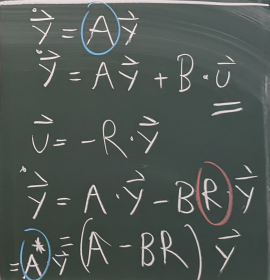 ẏ⃗ = A y⃗
ẏ⃗ = A y⃗ + B · u⃗
u⃗ = -R · y⃗
ẏ⃗ = A · y⃗ - B R · y⃗
= A* y⃗ = (A - BR) y⃗